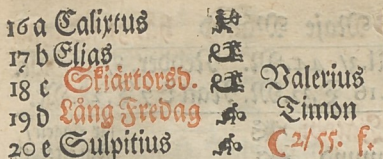 16 a Calixtus
17 b Elias
18 c Skiärtorsd. Valerius
19 d Lång Fredag Timon
20 e Sulpitius ☾ 2/ 55. f.